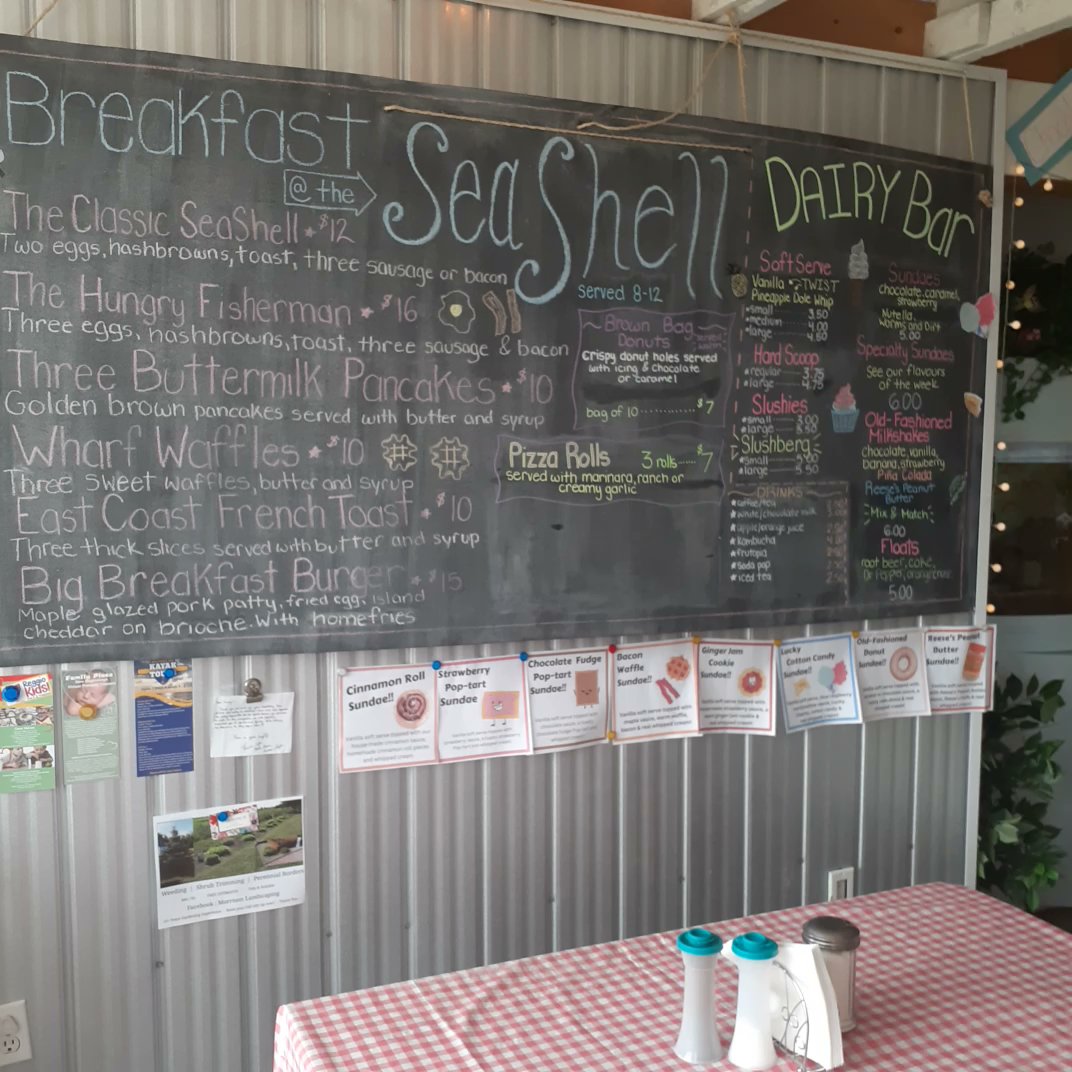 Breakfast
@ the
SeaShell
Served 8-12
The Classic SeaShell $12
Two eggs, hashbrowns, toast, three sausage or bacon
The Hungry Fisherman $16
Three eggs, hashbrowns, toast, three sausage & bacon
Three Buttermilk Pancakes $10
Golden brown pancakes served with butter and syrup
Wharf Waffles $10
Three sweet waffles, butter and syrup
East Coast French Toast $10
Three thick slices served with butter and syrup
Big Breakfast Burger $15
Maple glazed pork patty, fried egg, island
cheddar on brioche. With homefries
Brown Bag
Donuts
Crispy donut holes served
with icing & chocolate
or caramel
bag of 10 ............ $7
Pizza Rolls 3 rolls ...... $7
served with marinara, ranch or
creamy garlic
DAIRY Bar
Soft Serve
Vanilla TWIST
Pineapple Dole Whip
small 3.50
medium 4.00
large 4.50
Hard Scoop
regular 3.75
large 4.75
Slushies
small 3.00
large 3.50
Slushberg
small
large 5.50
DRINKS
coffee/tea
white/chocolate milk
apple/orange juice
kombucha
frutopia
soda pop
iced tea
Sundaes
chocolate, caramel,
strawberry
Nutella,
Worms and Dirt
5.00
Specialty Sundaes
See our flavours
of the week
6.00
Old-Fashioned
Milkshakes
chocolate, vanilla,
banana, strawberry
Piña Colada
Reese's Peanut
Butter
Mix & Match
6.00
Floats
root beer, coke,
Dr Pepper, orange crush
5.00
Reggio
Kids!
Family Place
KAYAK
TOU
Cinnamon Roll
Sundae!!
Vanilla soft serve topped with our
house-made cinnamon sauce,
homemade cinnamon roll pieces
and whipped cream
Strawberry
Pop-tart
Sundae
Chocolate Fudge
Pop-tart
Sundae!!
Bacon
Waffle
Sundae!!
Ginger Jam
Cookie
Sundae!!
Lucky
Cotton Candy
Sundae!!
Old-Fashioned
Donut
Sundae!!
Reese's Peanut
Butter
Sundae!!
Weeding | Shrub Trimming | Perennial Borders
Facebook : Morrison Landscaping